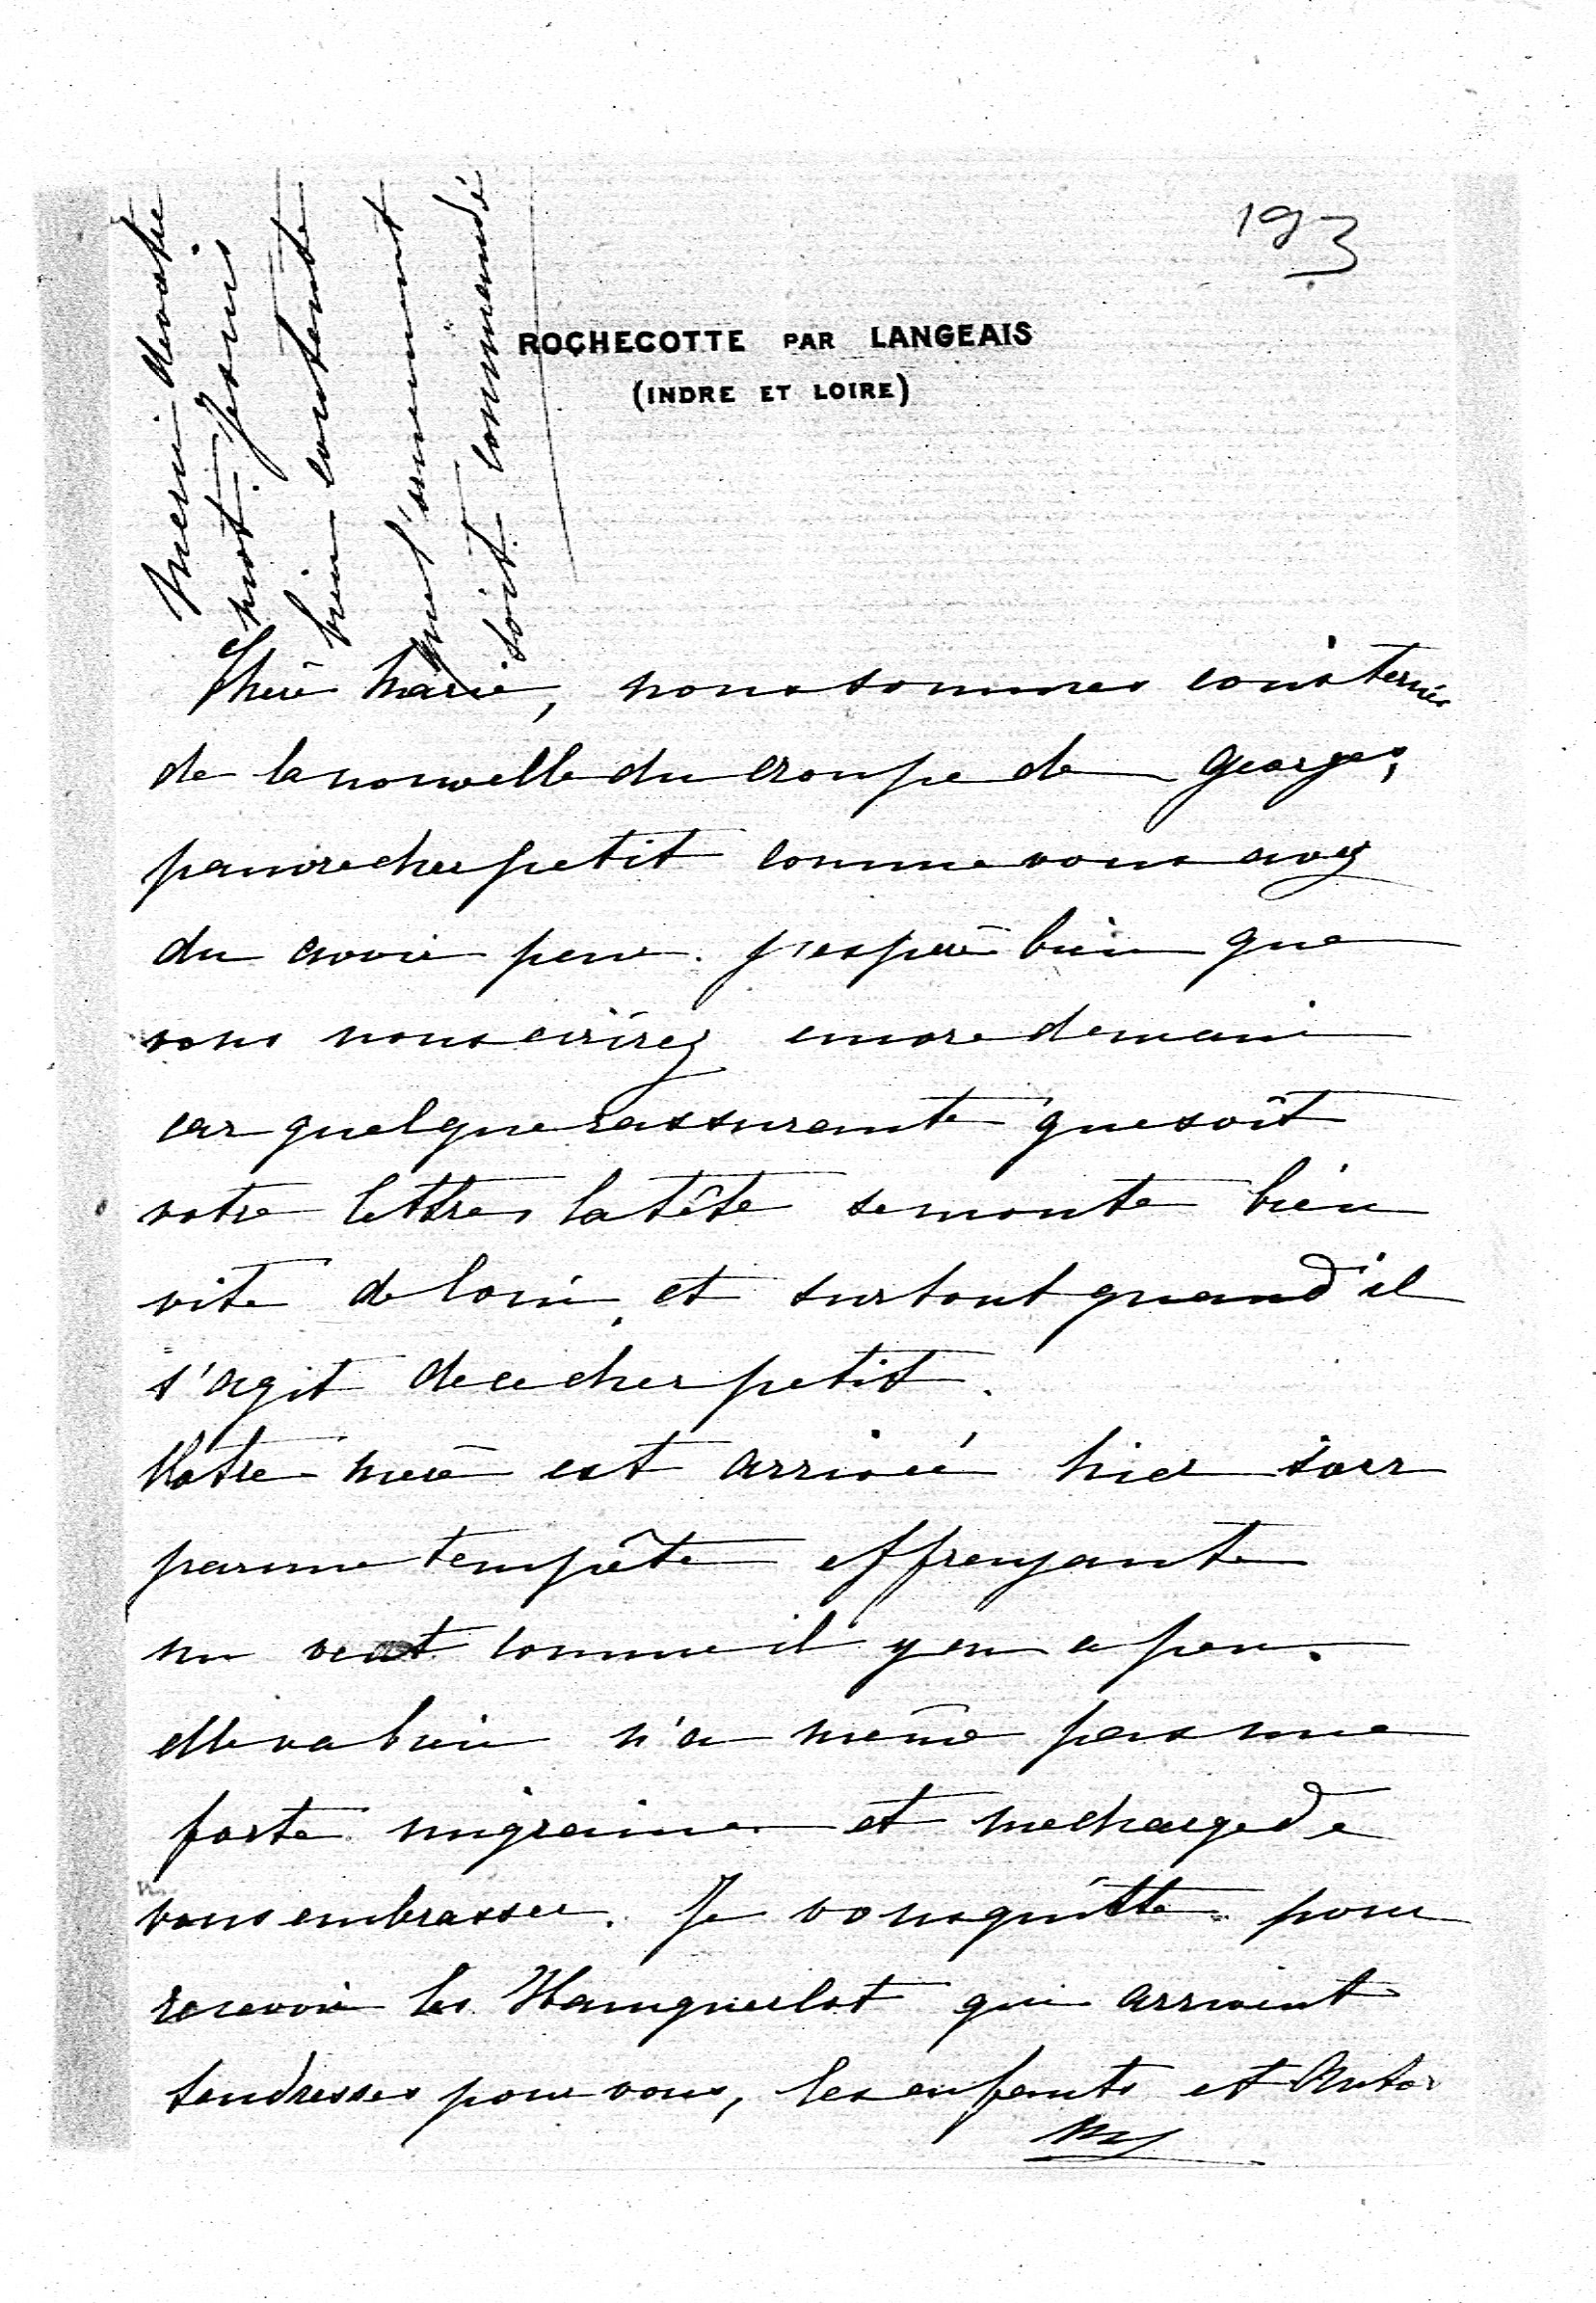 193
ROCHECOTTE PAR LANGEAIS
(INDRE ET LOIRE)
Chère Marie, nous sommes consternés
de la nouvelle du croupe de Georges,
pauvre cher petit comme vous avez
du avoir peur. J'espère bien que
vous nous écrirez encore demain
car quelque rassurante que soit
votre lettre, la tête se monte bien
vite de loin, et surtout quand il
s'agit de ce cher petit.
Notre mère est arrivée hier soir
par une tempête effrayante
un vent comme il y en a peu.
elle va bien n'a même pas une
forte migraine et me charge de
vous embrasser. Je vous quitte pour
recevoir les Hainguerlot qui arrivent
tendresses pour vous, les enfants et
My
Merci de votre
mot. Je suis
bien contente
que l'ornement
soit commandé